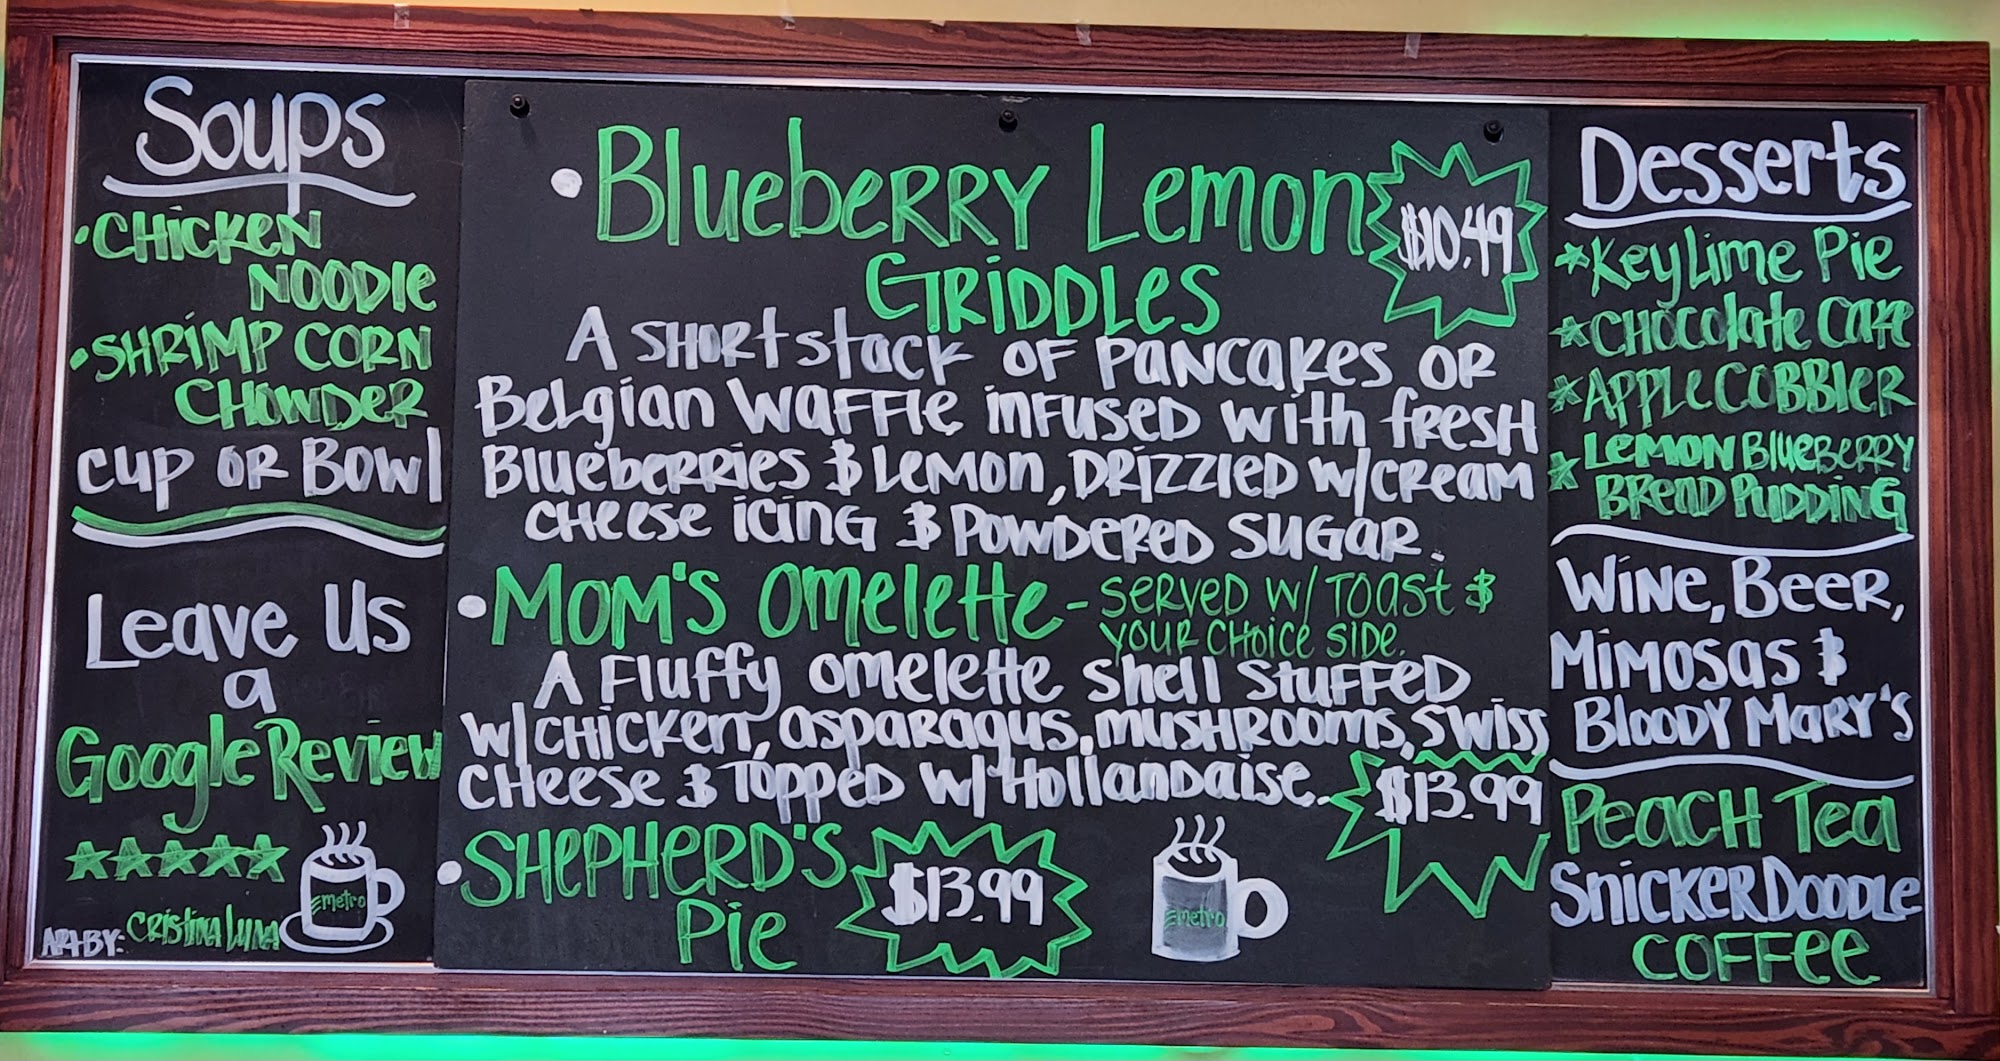 Soups
• Chicken
Noodle
• Shrimp Corn
Chowder
Cup or Bowl
Leave Us
a
Google Review
Art By: Cristina Luna
metro
• Blueberry Lemon
Griddles
$10.49
A short stack of pancakes or
Belgian waffle infused with fresh
Blueberries & Lemon, drizzled w/cream
cheese icing & powdered sugar.
• Mom's Omelette - Served w/ Toast &
your choice side.
A fluffy omelette shell stuffed
w/chicken, asparagus, mushrooms, swiss
cheese & topped w/Hollandaise.
$13.99
• Shepherd's
Pie
$13.99
metro
Desserts
* Key Lime Pie
* Chocolate Cake
* Apple Cobbler
* Lemon Blueberry
Bread Pudding
Wine, Beer,
Mimosas &
Bloody Mary's
Peach Tea
Snickerdoodle
Coffee